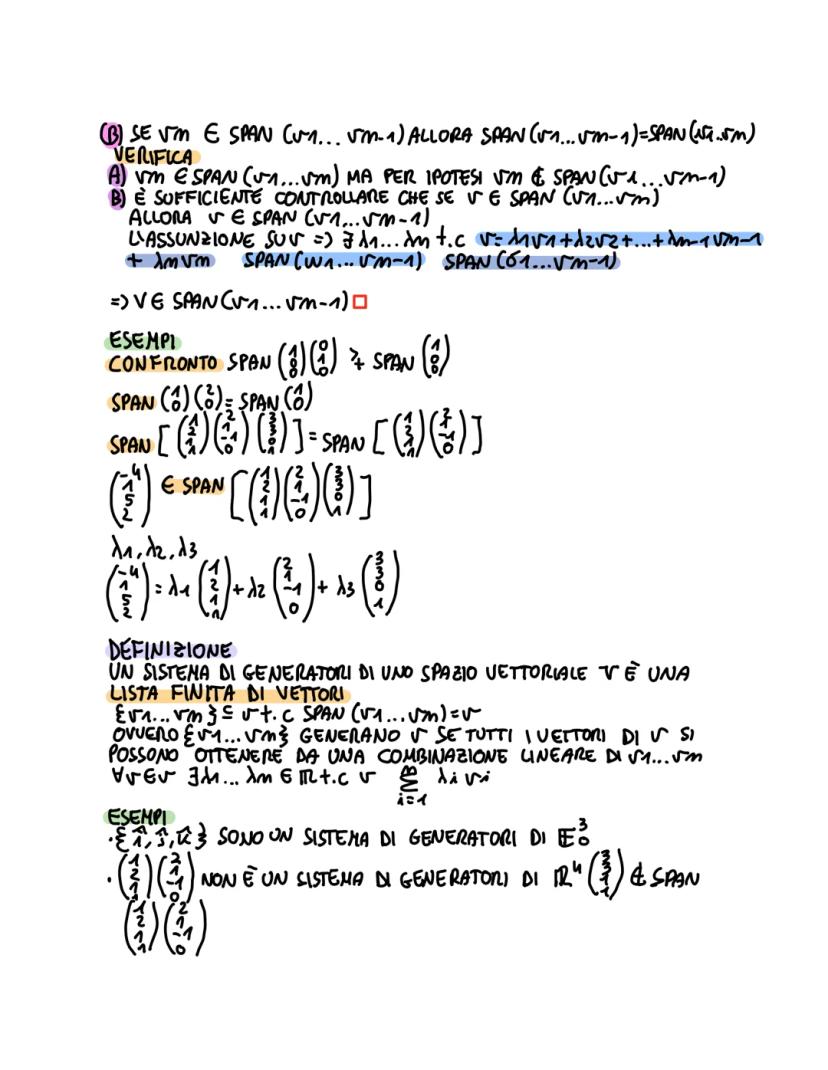 (B) SE vm ∈ SPAN (v1... vm-1) ALLORA SPAN (v1...vm-1)=SPAN (v1..vm)
VERIFICA
A) vm ∈ SPAN (v1...vm) MA PER IPOTESI vm ∉ SPAN (v1...vm-1)
B) È SUFFICIENTE CONTROLLARE CHE SE v ∈ SPAN (v1...vm)
ALLORA v ∈ SPAN (v1...vm-1)
L'ASSUNZIONE SU v => ∃ λ1... λm t.c v= λ1v1+λ2v2+...+λm-1vm-1
+ λmvm SPAN (w1... vm-1) SPAN (σ1...vm-1)
=> V ∈ SPAN (v1... vm-1) □
ESEMPI
CONFRONTO SPAN (1 0 0) (0 1 0) ≠ SPAN (1 0 0)
SPAN (1 0) (2 0) = SPAN (1 0)
SPAN [ (1 2 1 1) (2 1 -1 0) (3 3 0 1) ] = SPAN [ (1 2 1 1) (2 1 -1 0) ]
(-4 1 5 2) ∈ SPAN [ (1 2 1 1) (2 1 -1 0) (3 3 0 1) ]
λ1, λ2, λ3
(-4 1 5 2) = λ1 (1 2 1 1) + λ2 (2 1 -1 0) + λ3 (3 3 0 1)
DEFINIZIONE
UN SISTEMA DI GENERATORI DI UNO SPAZIO VETTORIALE V È UNA
LISTA FINITA DI VETTORI
{v1...vm} ⊆ v t.c SPAN (v1...vm)=v
OVVERO {v1...vm} GENERANO v SE TUTTI I VETTORI DI v SI
POSSONO OTTENERE DA UNA COMBINAZIONE LINEARE DI v1...vm
∀v∈v ∃λ1... λm ∈ R t.c v Σ i=1 m λi vi
ESEMPI
·{î, ĵ, k̂} SONO UN SISTEMA DI GENERATORI DI E³₀
· (1 2 1 1) (2 1 -1 0) NON È UN SISTEMA DI GENERATORI DI R⁴ (3 3 1 1) ∉ SPAN
(1 2 1 1) (2 1 -1 0)